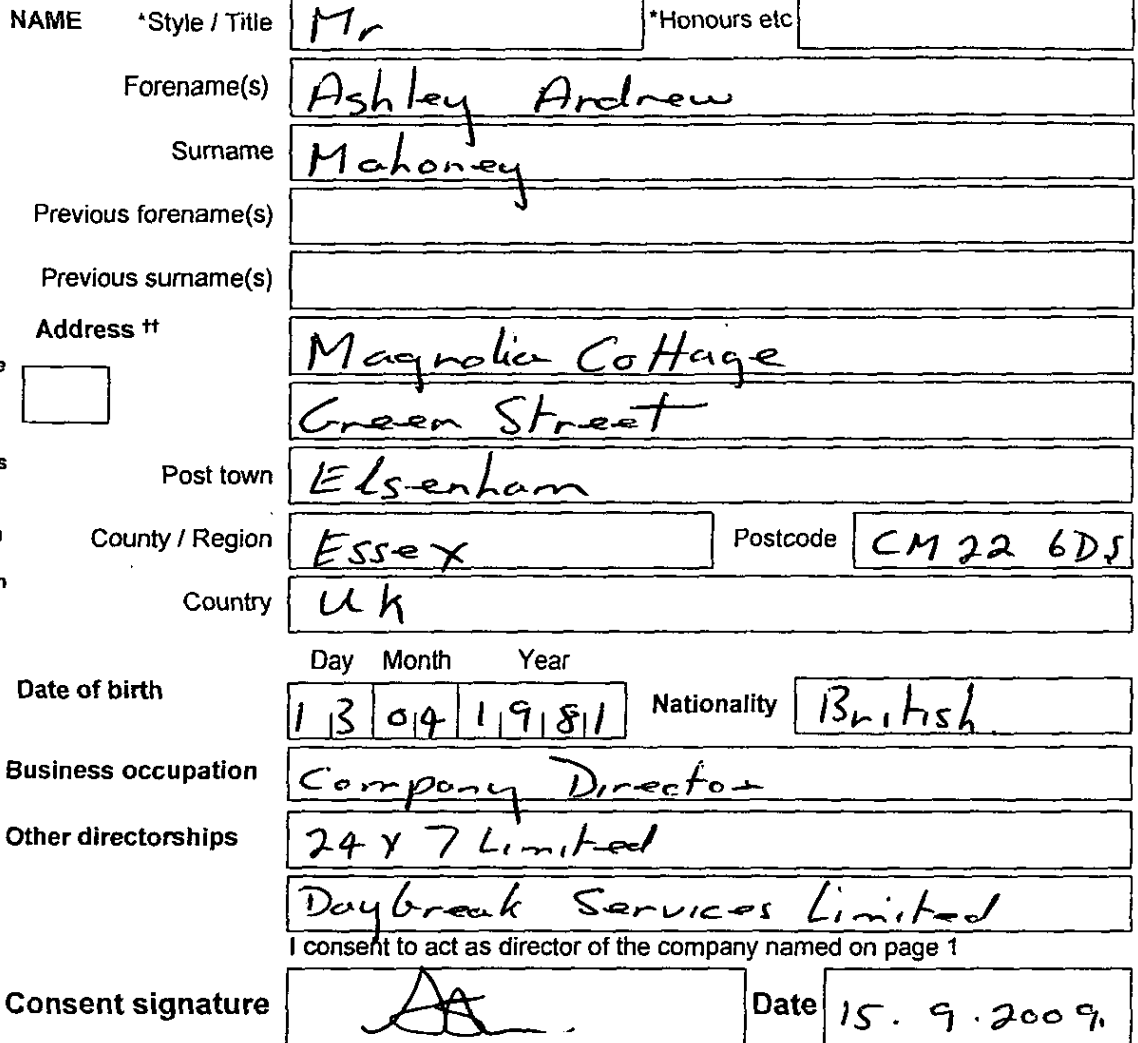 NAME *Style / Title Mr *Honours etc
Forename(s) Ashley Ardrew
Surname Mahoney
Previous forename(s)
Previous surname(s)
Address ††
Magnolia Cottage
Green Street
Post town Elsenham
County / Region Essex Postcode CM22 6DS
Country UK
Day Month Year
Date of birth 13 04 1981 Nationality British
Business occupation Company Director
Other directorships 24 x 7 Limited
Daybreak Services Limited
I consent to act as director of the company named on page 1
Consent signature Date 15.9.2009.